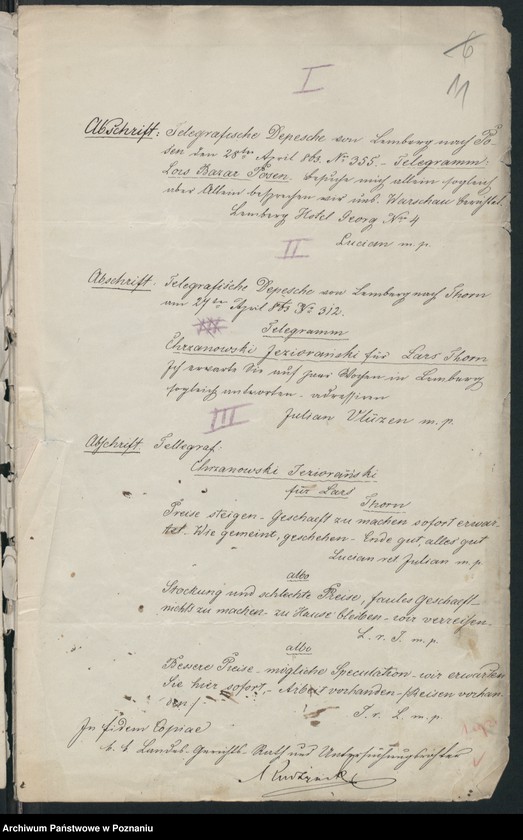 6
11
I
Abschrift: Telegrafische Depesche von Lemberg nach Po-
sen den 28ten April 863. No 355. - Telegramm.
Lors Bazar Posen. Besuche mich allein sogleich
über Allem besprechen wir uns. Warschau
Lemberg Hotel Georg No 4
Lucian m. p.
II
Abschrift. Telegrafische Depesche von Lemberg nach Thorn
am 27ten April 863 No 312.
Telegramm
Chrzanowski Jeziorański für Lars Thorn
Ich erwarte Sie auf zwei Wochen in Lemberg
sogleich antworten. adressiren
Julian Vlüzen m. p.
III
Abschrift Tellegraf.
Chrzanowski Jeziorański
für Lars
Thorn
Preise steigen - Geschaeft zu machen sofort erwar-
tet. Wie gemeint, geschehen - Ende gut, alles gut
Lucian ret Julian m. p
albo
Stockung und schlechte Preise, faules Geschaeft
nichts zu machen - zu Hause bleiben - wir verreisen.
L. r. J. m. p.
albo
Bessere Preise - mögliche Speculation - wir erwarten
Sie hier sofort. - Arbeit vorhanden - Reisen vorhan-
den /
J. r. L. m. p.
In fidem Copiae
Landes-Gerichts-Rath und Untersuchungsrichter
Archiwum Państwowe w Poznaniu